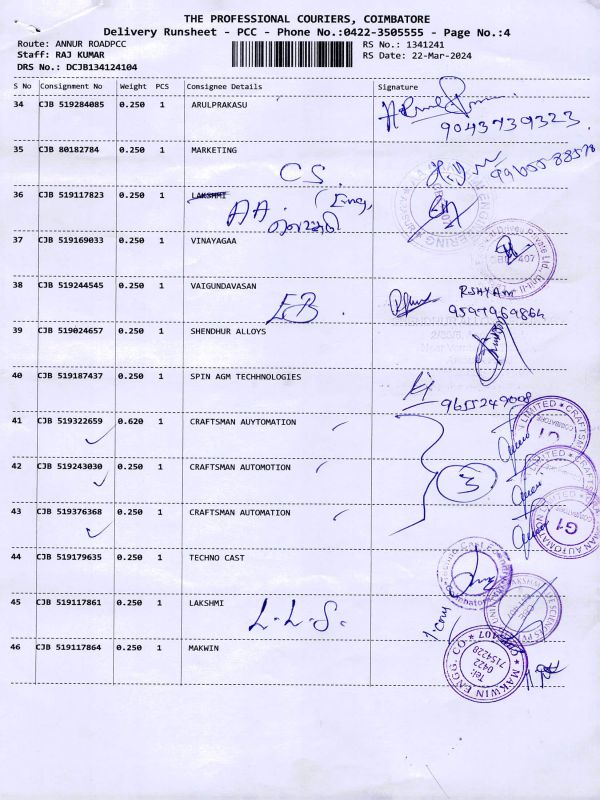 THE PROFESSIONAL COURIERS, COIMBATORE
Delivery Runsheet - PCC - Phone No.:0422-3505555 - Page No.:4
Route: ANNUR ROADPCC
RS No.: 1341241
Staff: RAJ KUMAR
RS Date: 22-Mar-2024
DRS No.: DCJB134124104
S No Consignment No Weight PCS Consignee Details Signature
34 CJB 519284085 0.250 1 ARULPRAKASU
9043739323
35 CJB 80182784 0.250 1 MARKETING
9965588578
CS.
36 CJB 519117823 0.250 1 LAKSHMI
AA.
37 CJB 519169033 0.250 1 VINAYAGAA
38 CJB 519244545 0.250 1 VAIGUNDAVASAN
RSHYAM
EB
9597969864
39 CJB 519024657 0.250 1 SHENDHUR ALLOYS
40 CJB 519187437 0.250 1 SPIN AGM TECHHNOLOGIES
9655249008
41 CJB 519322659 0.620 1 CRAFTSMAN AUYTOMATION
42 CJB 519243030 0.250 1 CRAFTSMAN AUTOMOTION
3
43 CJB 519376368 0.250 1 CRAFTSMAN AUTOMATION
G1
44 CJB 519179635 0.250 1 TECHNO CAST
45 CJB 519117861 0.250 1 LAKSHMI
L.L.S.
46 CJB 519117864 0.250 1 MAKWIN
MAKWIN ENGG. CO
Tel:
0422
7154228